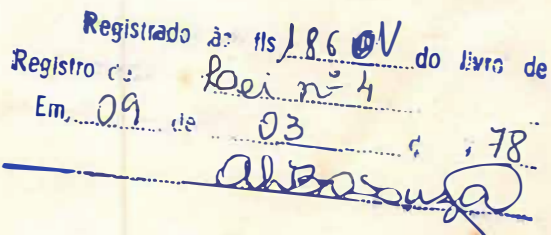 Registrado às fls 186 V do livro de
Registro de Lei nº 4
Em, 09 de 03 d 78